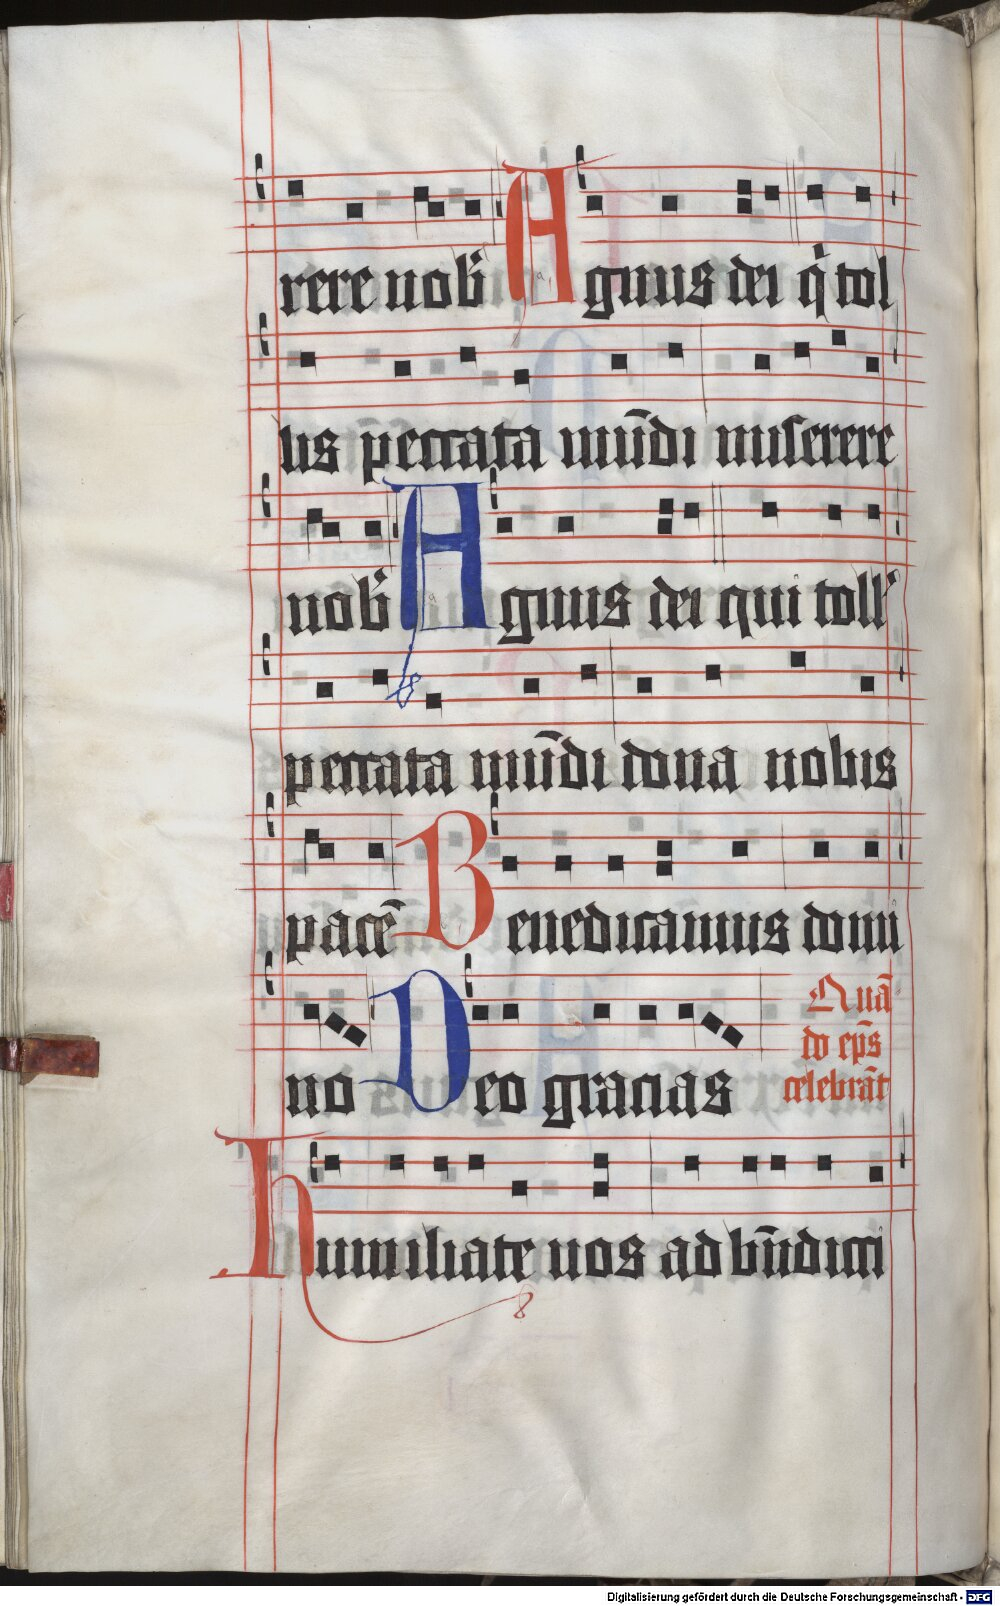 rere nobꝭ Agnus dei q̇ tol
lis peccata mūdi miserere
nobꝭ Agnus dei qui toll'
peccata mūdi dona nobis
pacē Benedicamus domi
no Deo gracias
Quā
do ep̄s
celebrāt
Humiliate uos ad bn̄dicti
Digitalisierung gefördert durch die Deutsche Forschungsgemeinschaft - DFG